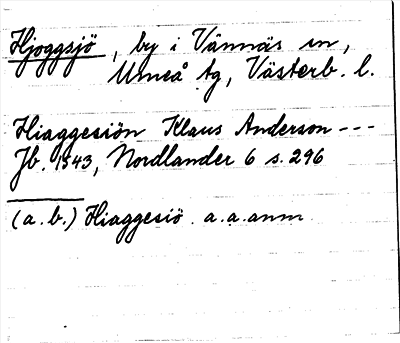 Hjoggsjö, by i Vännäs sn,
Umeå tg, Västerb. l.
Hiaggesiön Klaus Anderson ---
Jb. 1543, Nordlander 6 s. 296
(a. b.) Hiaggesiö. a. a. anm